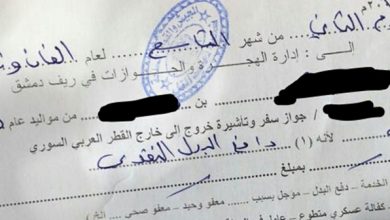 من شهر التاسع لعام ألفان و
الى : إدارة الهجرة والجوازات في ريف دمشق
بن من مواليد عام
/ جواز سفر وتأشيرة خروج الى خارج القطر العربي السوري
لأنه (١) دافع البدل النقدي
بمبلغ
الخدمة – دفع البدل – مؤجل بسبب – معفو وحيد – معفو صحي ... الخ )
كفالة عسكري متطوع